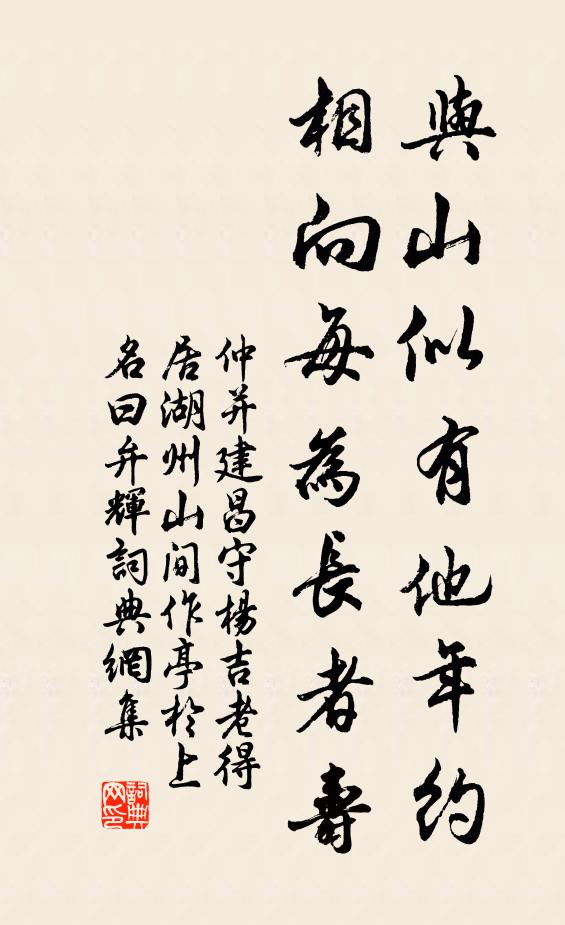 與山似有他年約
相向每為長者壽
仲并建昌守楊吉老得
居湖州山間作亭於上
名曰弁輝詞典網集
詞典
网印